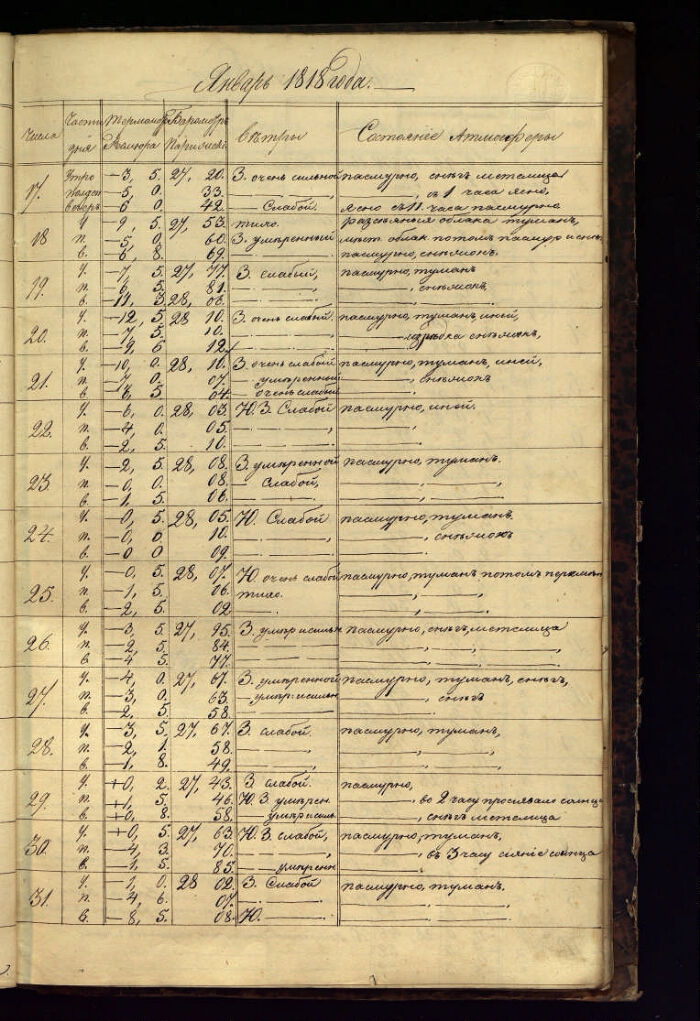 Январь 1818 года.
Числа Части дня Термометр Реомюра Барометръ Парижскiй Вѣтры Состоянiе Атмосферы
17. Утро —3, 5. 27, 20. З. очень сильной пасмурно, снѣгъ метелица
Полдень —5, 0. 33. — — , съ 1 часа ясно,
вечеръ —6 0. 42. — Слабой. ясно съ 11. часа пасмурно
18 У —9, 5. 27, 53. тихо. разсѣянныя облака туманъ,
п. —5, 0. 60. З. умѣренный облак. потомъ пасмур и
в. —6, 8. 69. — — пасмурно, снѣжокъ.
19. У. —7, 5. 27, 77. З. слабый, пасмурно, туман
п. —6, 5. 81. — — — , снѣжокъ
в. —11, 3. 28, 08. — — — , —
20. У. —12, 5. 28 10. З. очень слабой. пасмурно, туман, иней,
п. —7, 5. 10. — — — изрѣдка снѣжокъ,
в. —9, 6 12, — — — , —
21. У. —10, 0. 28, 10. З. очень слабой пасмурно, туманъ, иней,
п. —7, 0. 07. — умѣренной — , снѣжокъ
в. —8, 5 04. — очень слабой — , —
22. У. —6, 0. 28, 03. Ю. З. Слабой пасмурно, иней.
п. —4, 0. 05. — — —
в. —2, 5. 10. — — —
23. У. —2, 5. 28, 08. З. умѣренной пасмурно, туманъ.
п. —0, 0. 08. — Слабой, — , —
в. —1, 5 06. — — — , —
24. У. —0, 5. 28, 05. Ю. Слабой пасмурно, туманъ.
п. —0, 0. 10. — — — , снѣжокъ
в. —0 0 09. — — —
25. У. —0, 5. 28, 07. Ю. очень слабой пасмурно, туманъ потомъ
п. —1, 5. 06. тихо. — , —
в. —2, 5. 02. — — , —
26. У. —3, 5. 27, 95. З. умѣр и сильн пасмурно, снѣгъ, метелица
п. —2, 5. 84. — — — , — , —
в. —4 5. 77. — — — , — , —
27. У. —4, 0. 27, 67. З. умѣренной пасмурно, туманъ, снѣгъ,
п. —3, 0. 63. — умѣр: и сильн — , снѣгъ
в. —2, 5 58. — — — , —
28. У. —3, 5. 27, 67. З. слабой. пасмурно, туманъ,
п. —2, 1. 58. — — — , —
в. —1, 8. 49. — — — , —
29. У. +0, 2. 27, 43. З. слабой. пасмурно,
п. +1, 5. 46. Ю. З. умѣрен — , во 2 часу просѣявало солнце
в. +0, 8. 58. — умѣр: и сильн — , снѣгъ метелица
30. У. +0, 5. 27, 63. Ю. З. слабой, пасмурно, туманъ,
п. —4, 3. 70. — — — , въ 3 часу сiянiе солнца
в. —1, 5. 85. — умѣренн — , —
31. У. —1, 0. 28 02. З. Слабой пасмурно, туманъ.
п. —4, 6. 07. — — — , —
в. —8, 5. 08. Ю. — — , —